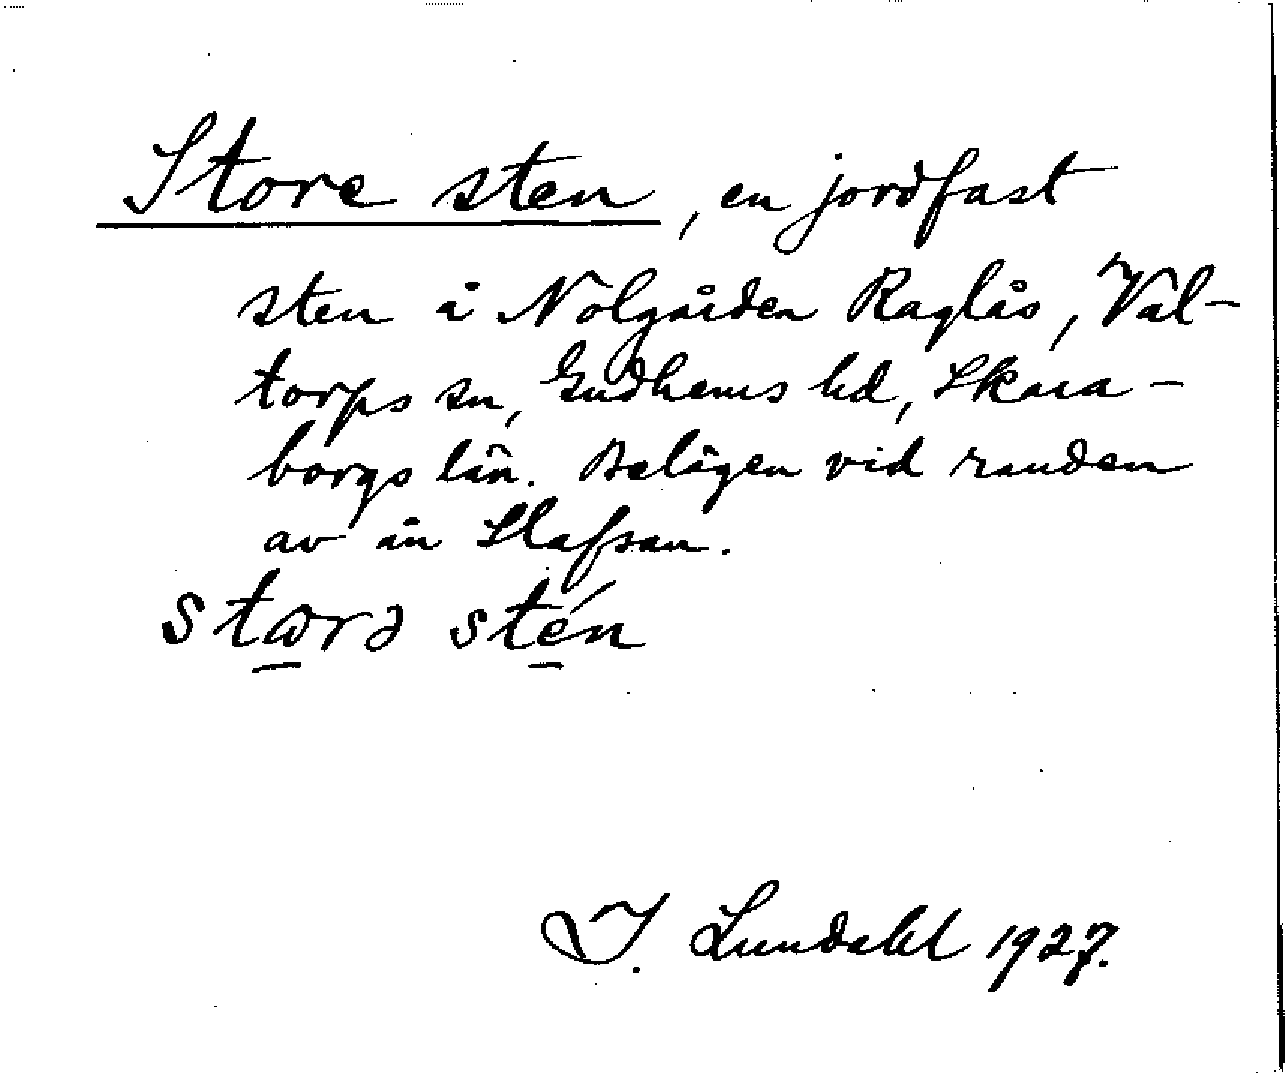 Store sten, en jordfast
sten å Nolgården Raglås, Val-
torps sn, Gudhems hd, Skara-
borgs län. Belägen vid randen
av ån Slafsan.
stωrə stén
I. Lundahl 1927.